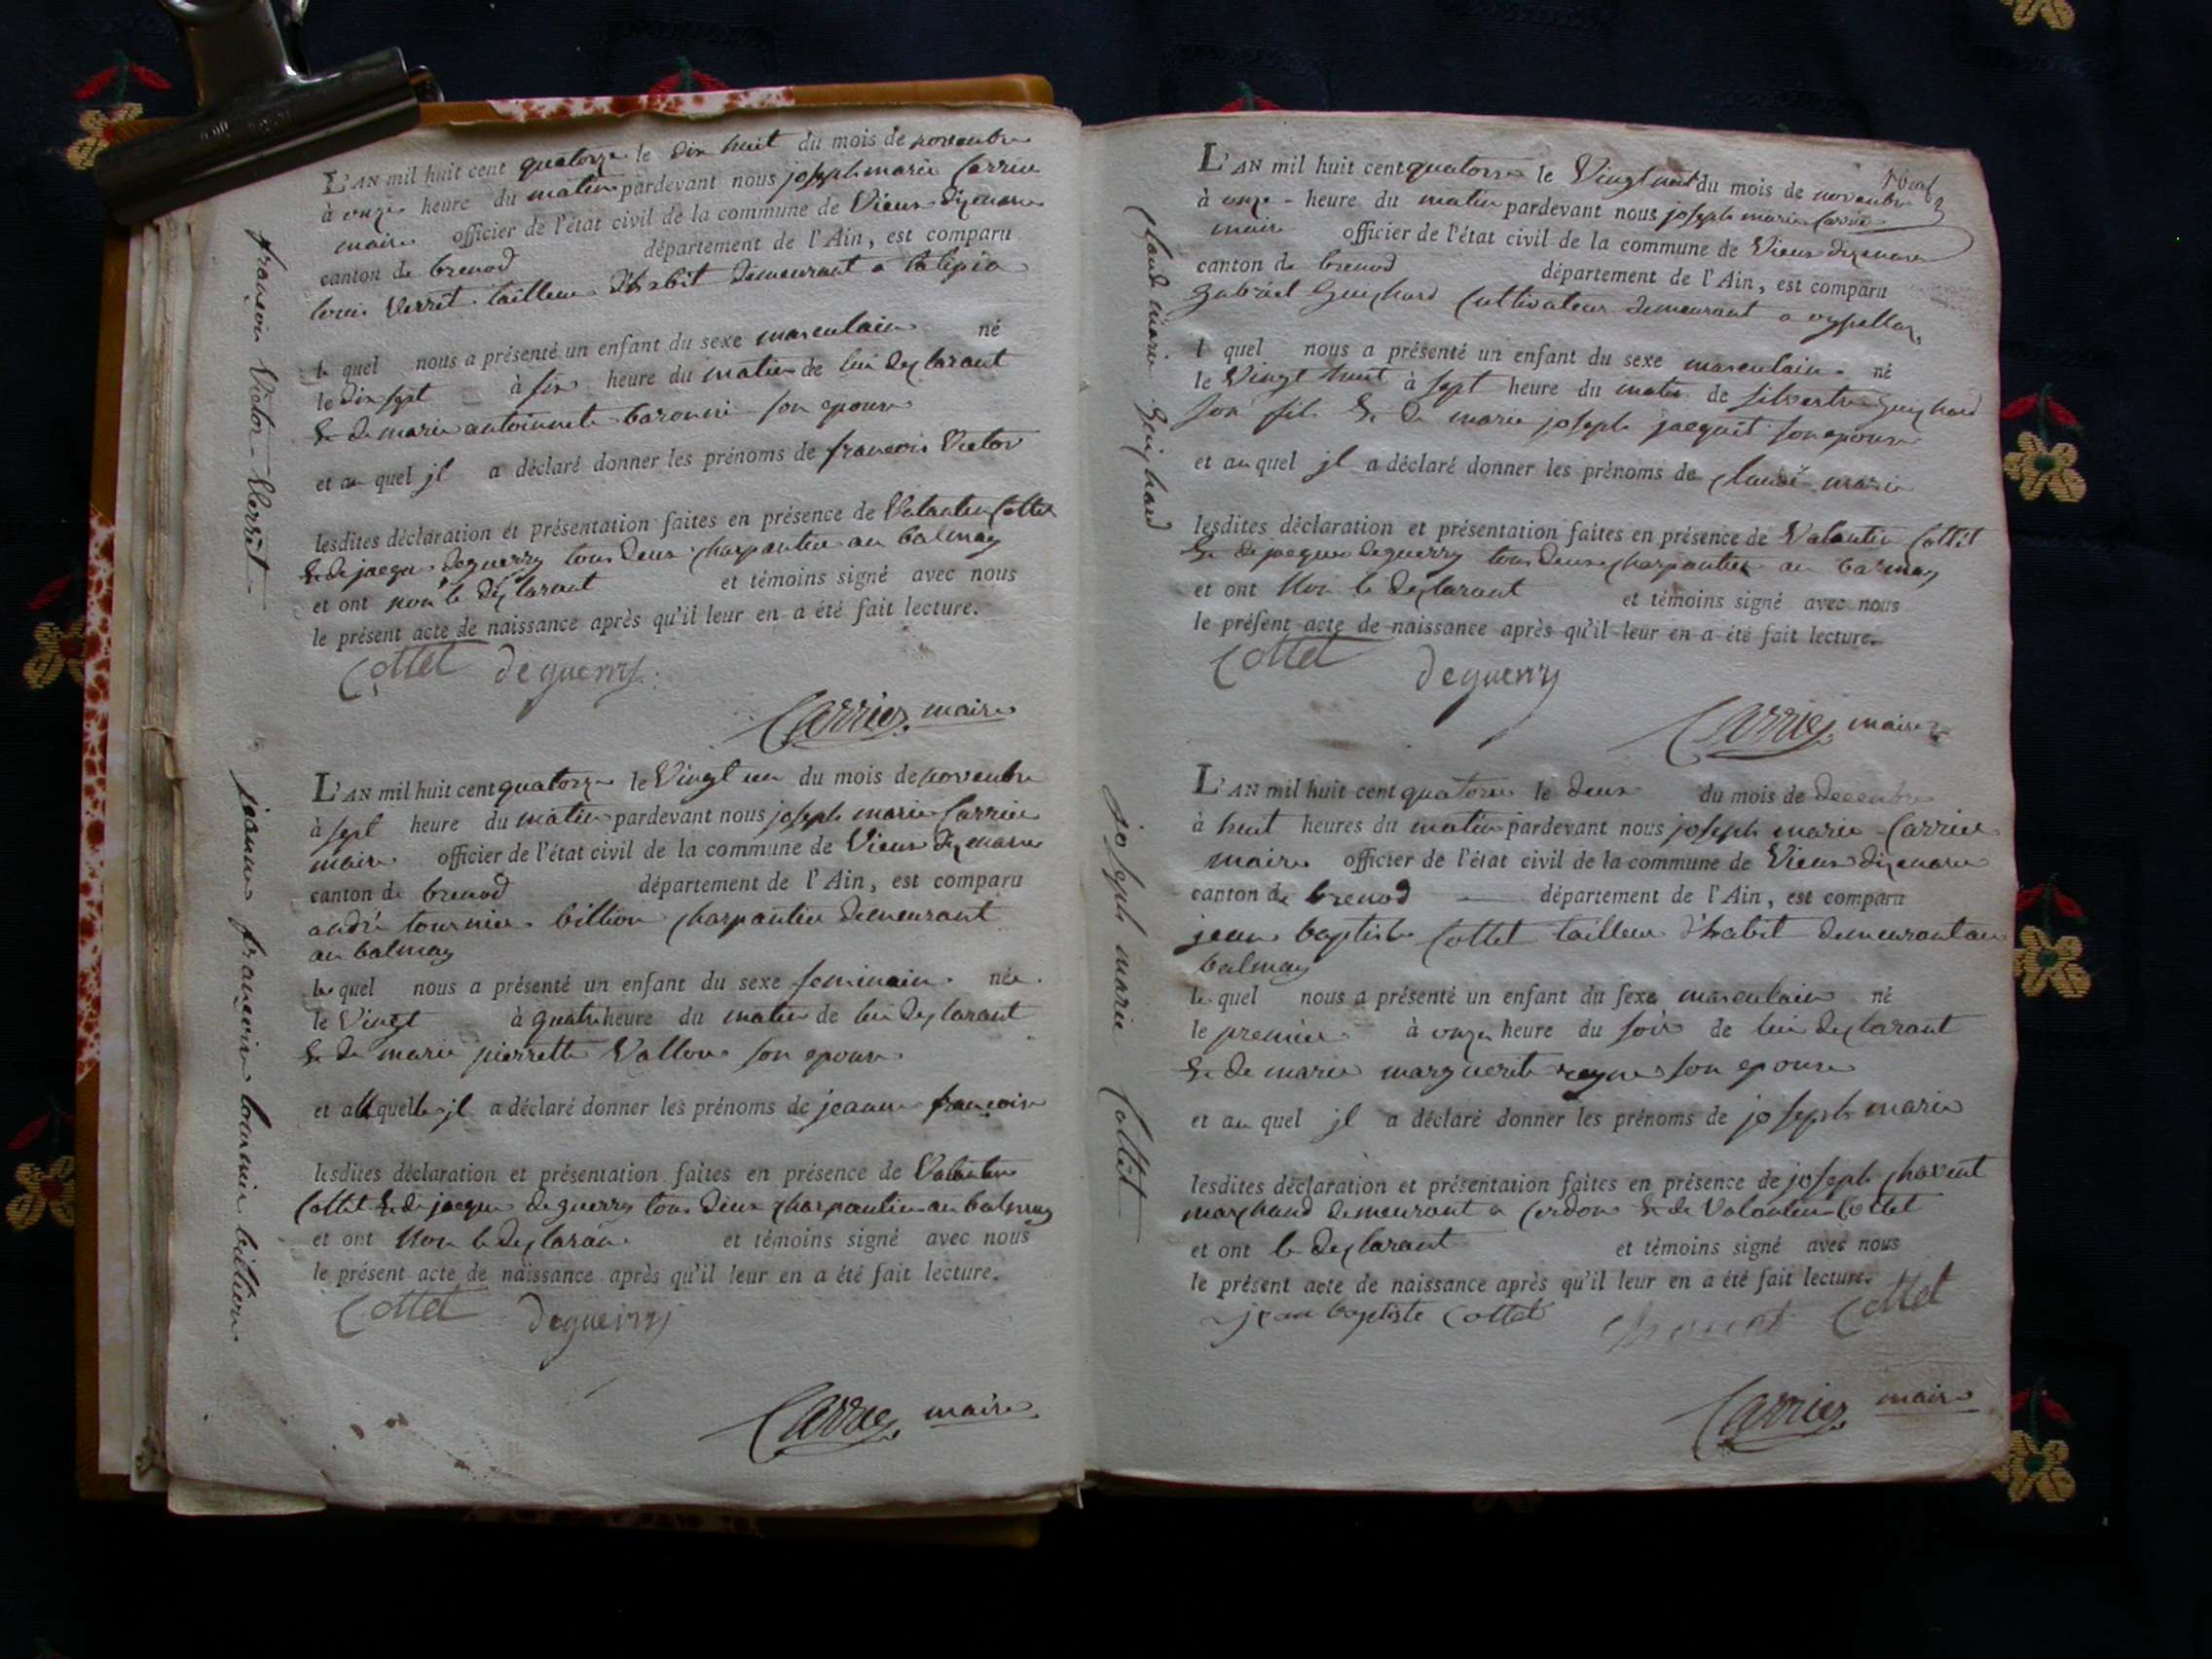 L'AN mil huit cent quatorze le dix huit du mois de novembre
à onze heure du matin pardevant nous joseph marie Carrier
maire officier de l'état civil de la commune de Vieux dizenave
canton de brenod département de l'Ain, est comparu
louis Verret tailleur d'habit demeurant a
le quel nous a présenté un enfant du sexe masculain né
le dix sept à six heure du matin de lui declarant
& de marie antoinnete baronni son epouse
et au quel jl a déclaré donner les prénoms de francois Victor
lesdites déclaration et présentation faites en présence de Valantin Cottet
& de jacque deguerry tous deux charpantier au balmay
et ont non le declarant et témoins signé avec nous
le présent acte de naissance après qu'il leur en a été fait lecture.
Cottet deguerry
Carrier maire
francois Victor Verret
L'AN mil huit cent quatorze le Vingt un du mois de novembre
à sept heure du matin pardevant nous joseph marie Carrier
maire officier de l'état civil de la commune de Vieux dizenave
canton de brenod département de l'Ain, est comparu
andré tournier billion charpantier demeurant
au balmay
le quel nous a présenté un enfant du sexe feminain née
le Vingt à quatre heure du matin de lui declarant
& de marie pierrette Vallon son epouse
et a quelle jl a déclaré donner les prénoms de jeanne francoise
lesdites déclaration et présentation faites en présence de Valantin
Cottet & de jacque deguerry tous deux charpantier au balmay
et ont non le declarant et témoins signé avec nous
le présent acte de naissance après qu'il leur en a été fait lecture.
Cottet deguerry
Carrier maire
jeanne francoise tournier billion
L'AN mil huit cent quatorze le Vingt huit du mois de novembre
à onze heure du matin pardevant nous joseph marie Carrier
maire officier de l'état civil de la commune de Vieux dizenave
canton de brenod département de l'Ain, est comparu
Gabriel Guichard Cultivateur demeurant a
l quel nous a présenté un enfant du sexe masculain né
le Vingt huit à sept heure du matin de silvestre Guichard
son fil & de marie joseph jacquet son epouse
et au quel jl a déclaré donner les prénoms de claude marie
lesdites déclaration et présentation faites en présence de Valantin Cottet
& de jacque deguerry tous deux charpantier au balmay
et ont Non le declarant et témoins signé avec nous
le présent acte de naissance après qu'il leur en a été fait lecture.
Cottet deguerry
Carrier maire
Claude marie Guichard
L'AN mil huit cent quatorze le deux du mois de decembre
à huit heures du matin pardevant nous joseph marie Carrier
maire officier de l'état civil de la commune de Vieux dizenave
canton de brenod département de l'Ain, est comparu
jean baptiste Cottet tailleur d'habit demeurant au
balmay
le quel nous a présenté un enfant du sexe masculain né
le premier à onze heure du soir de lui declarant
& de marie marguerite reyne son epouse
et au quel jl a déclaré donner les prénoms de joseph marie
lesdites déclaration et présentation faites en présence de joseph chavent
marchand demeurant a Cerdon & de Valantin Cottet
et ont le declarant et témoins signé avec nous
le présent acte de naissance après qu'il leur en a été fait lecture.
jean baptiste Cottet Cottet
Carrier maire
joseph marie Cottet